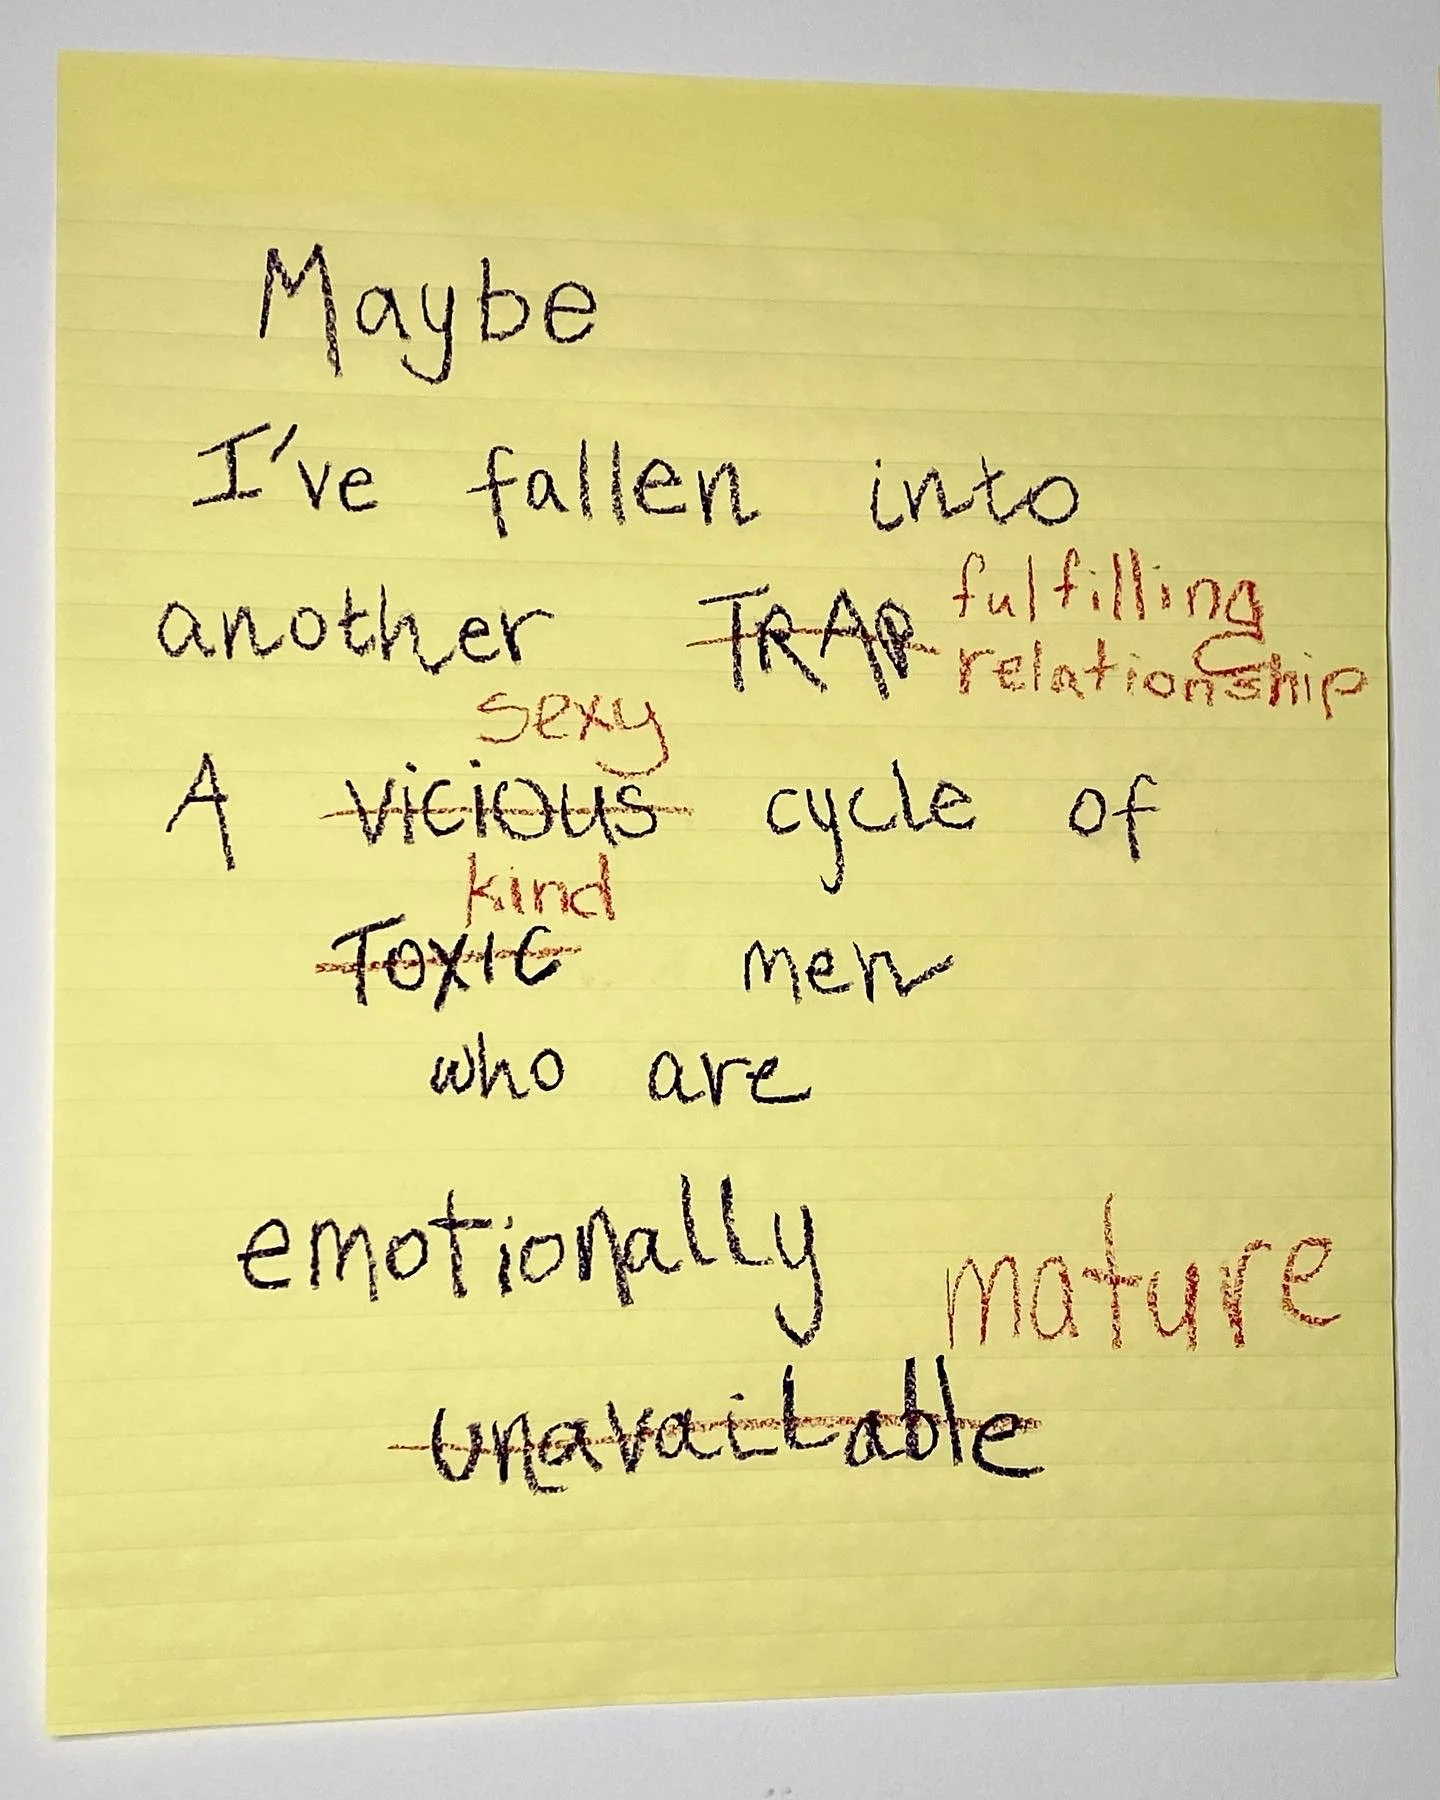 Maybe
I've fallen into
another TRAP fulfilling
relationship
sexy
A vicious cycle of
kind
TOXIC men
who are
emotionally mature
unavailable